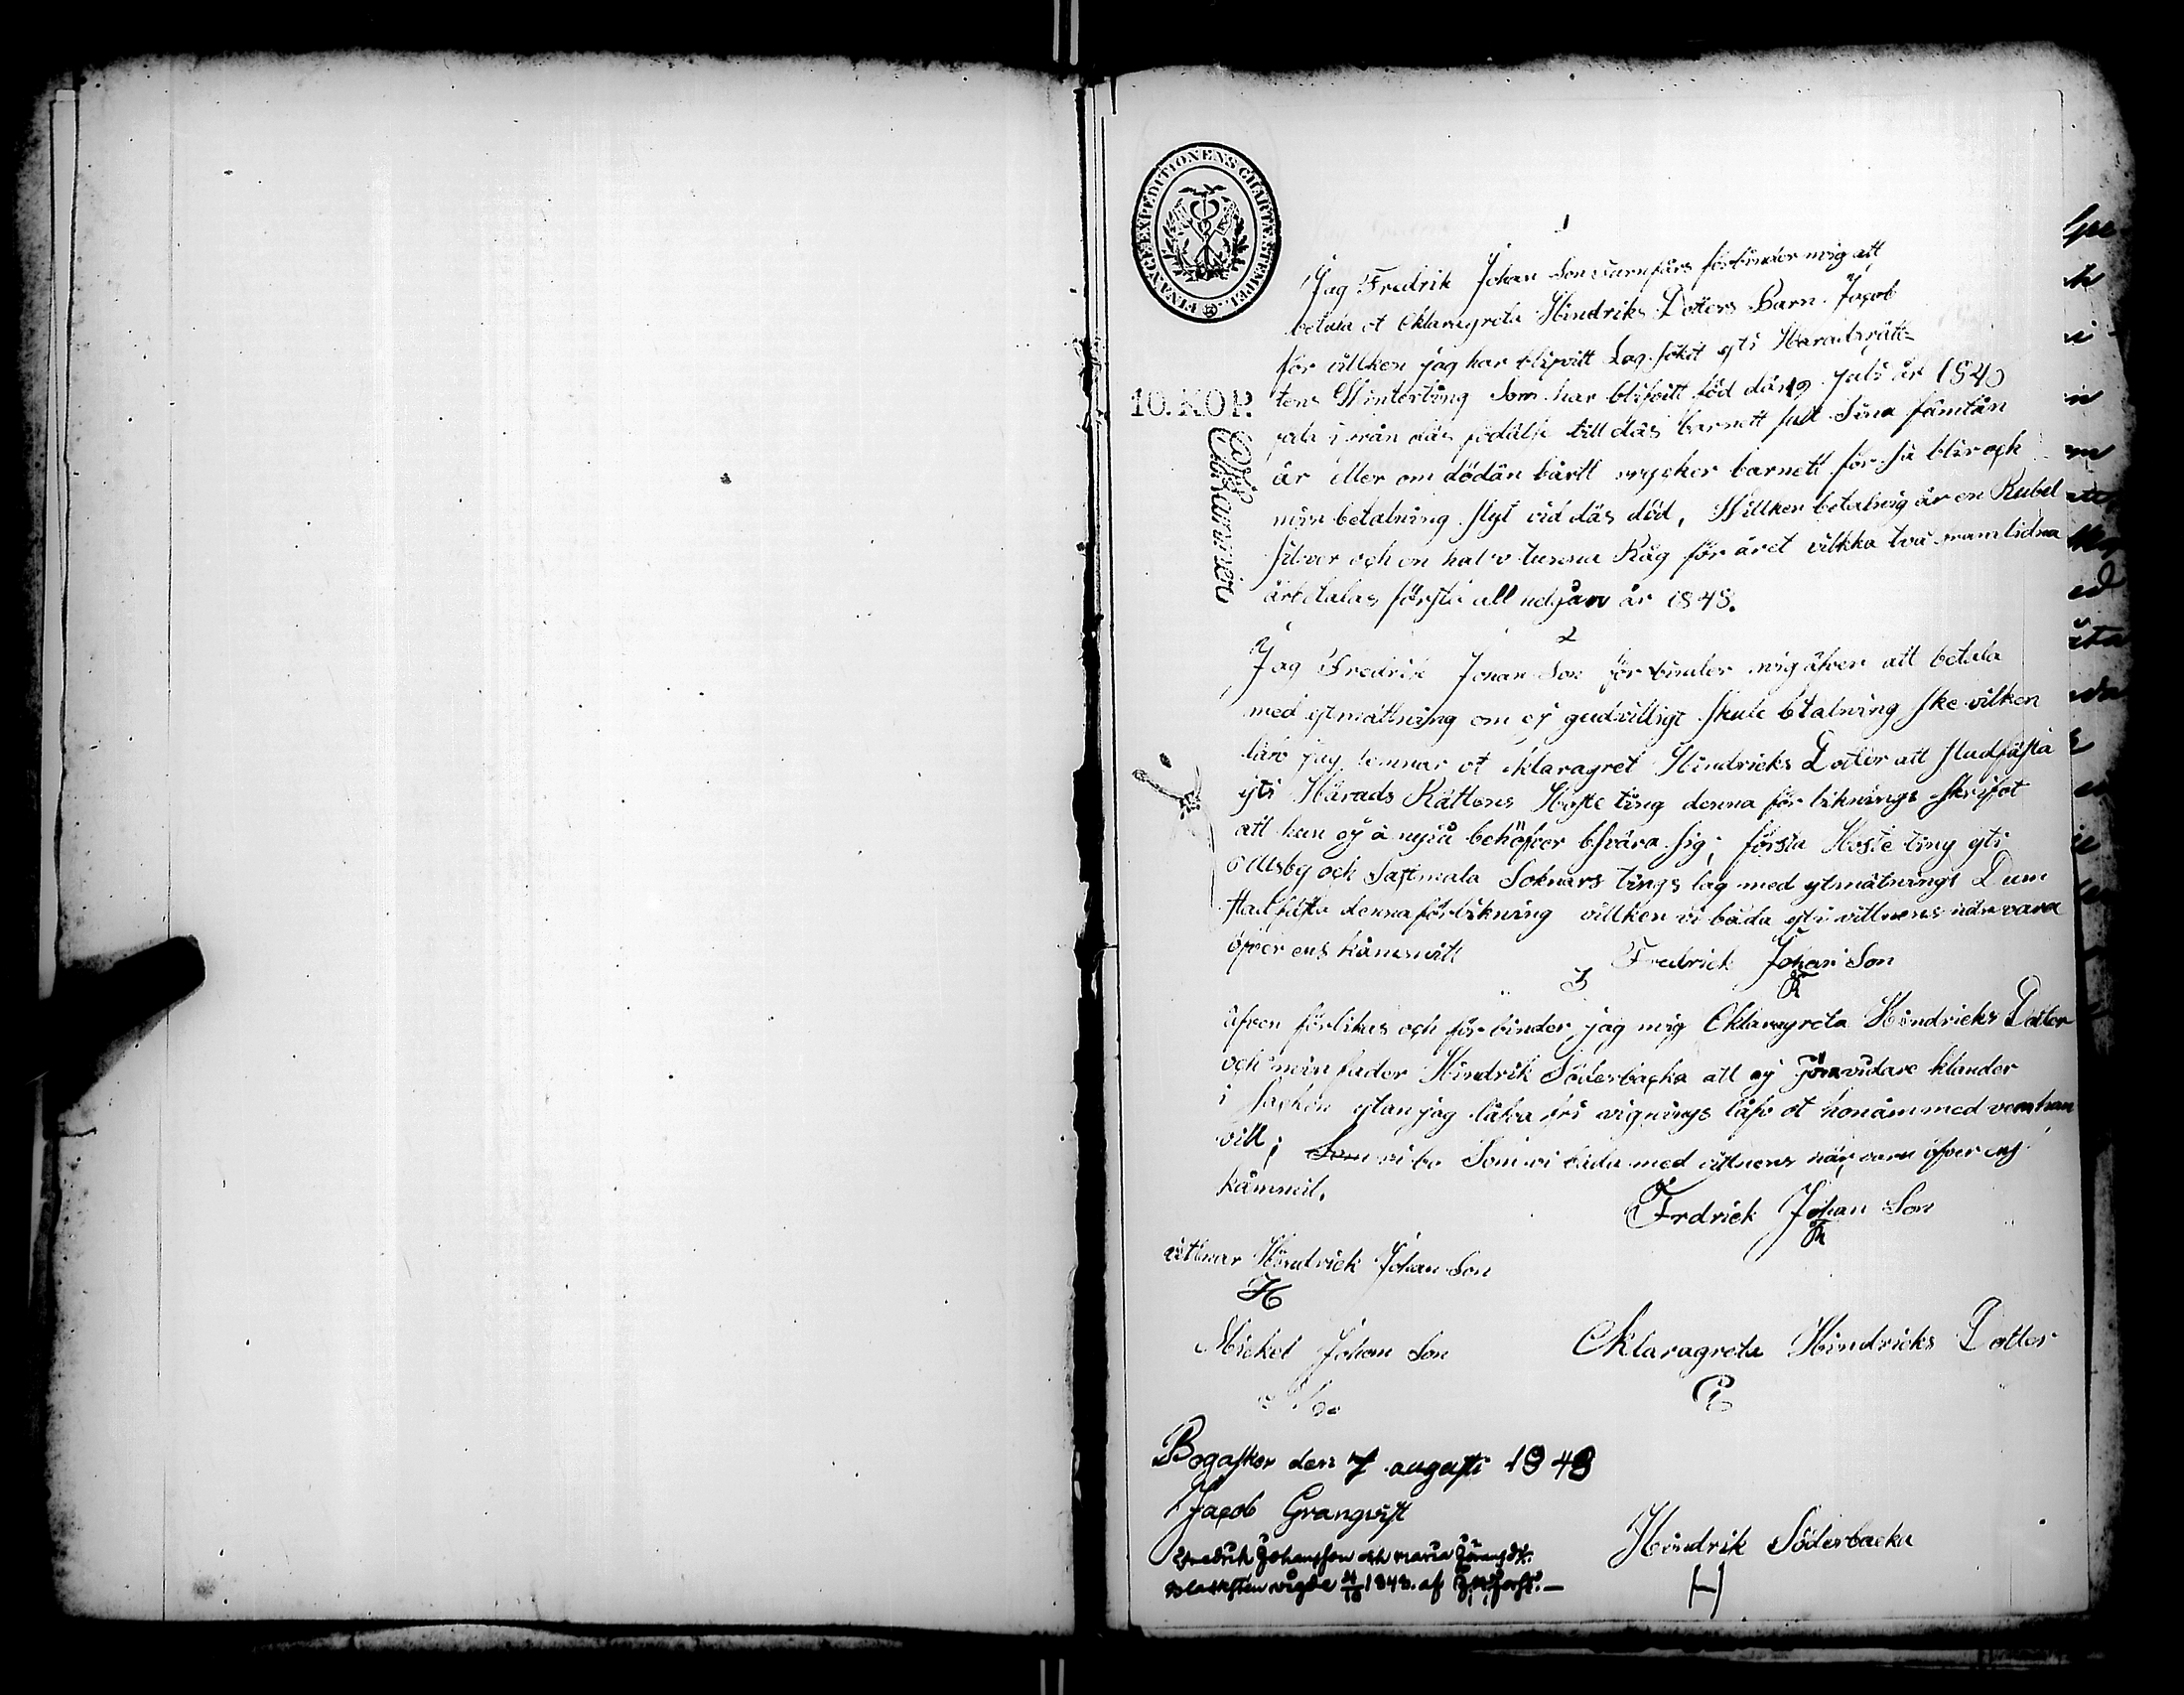 FINANCE EXPEDITIONENS CHARTÆ STEMPEL
10. KOP.
1
Jag Fredrik Johan Son förbinder mig att
betala ot Cklaragreta Hindriks Dotters Barn Jacob
för villken jag har blifvitt Lag sökt yti Häradsrätt=
tens Winterting Som har blifvitt föd dän 19 Juli år 1840
till däs barnett fult Sina fämtån
år eller om dödän bårtt rycker barnett för så blir och
min betalning slyt vid däs död, Willken betalnig är en Rubel
silver och en halv tunna Råg för året vilkka två framlidna
år betalas första år 1848.
2
Jag Fredrik Johan Son förbinder mig äfven att betala
med ytmättning om ej gudvilligt skule btalning ske vilken
låv jag lemnar ot Cklaragret Hindricks Dotter att stadfästa
yti Härads Rättens Höste ting denna förlikninigs skrifvt
att hun ej å nyiu behöfver bsvära sig; första Höste ting yti
och Sastmala Soknars tings lag med ytmätnings Dum
stadfästa denna förlikning villken vi båda yti vittnens närvara
öfver ens kåmmitt
Fredrick Johan Son
3
äfven förlikes och förbinder jag mig Cklaragreta Hindricks Dotter
och min fader Hindrik Söderbacka att ej vidare klander
i Sacken ytan jag fri vignings låfv ot honåm med vem han
vill; Som vi bo Som vi båda med vittnens när vara öfver ens
kåmmit.
Frdrick Johan Son
vittnar Hindrick Johan Son
H
Mickel Johan Son
Cklaragreta Hindricks Dotter
Bogaskor den 7 augusti 1848
Jacob Granqvist
Hindrik Söderbacka
H
Fredrik Johansson och Maria
vigde 1848. af